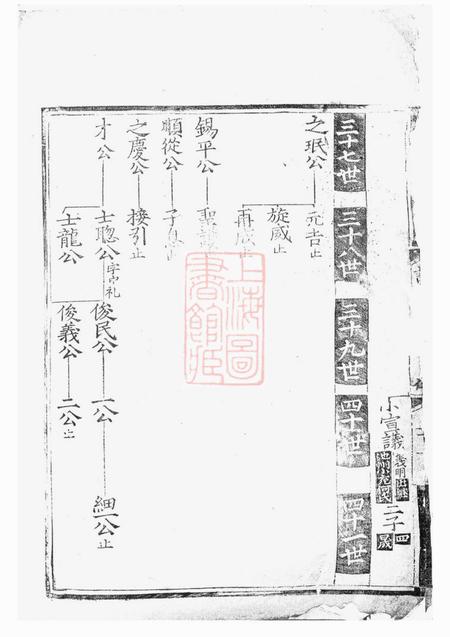 小宣議
二子
四
晟
三十七世
三十八世
三十九世
四十世
四十一世
之珉公
元吉止
旋威止
再威止
錫平公
順從公
之慶公
接引止
才公
士聰公
士龍公
俊民公
一公
細一公止
俊義公
二公止
上海圖書館藏